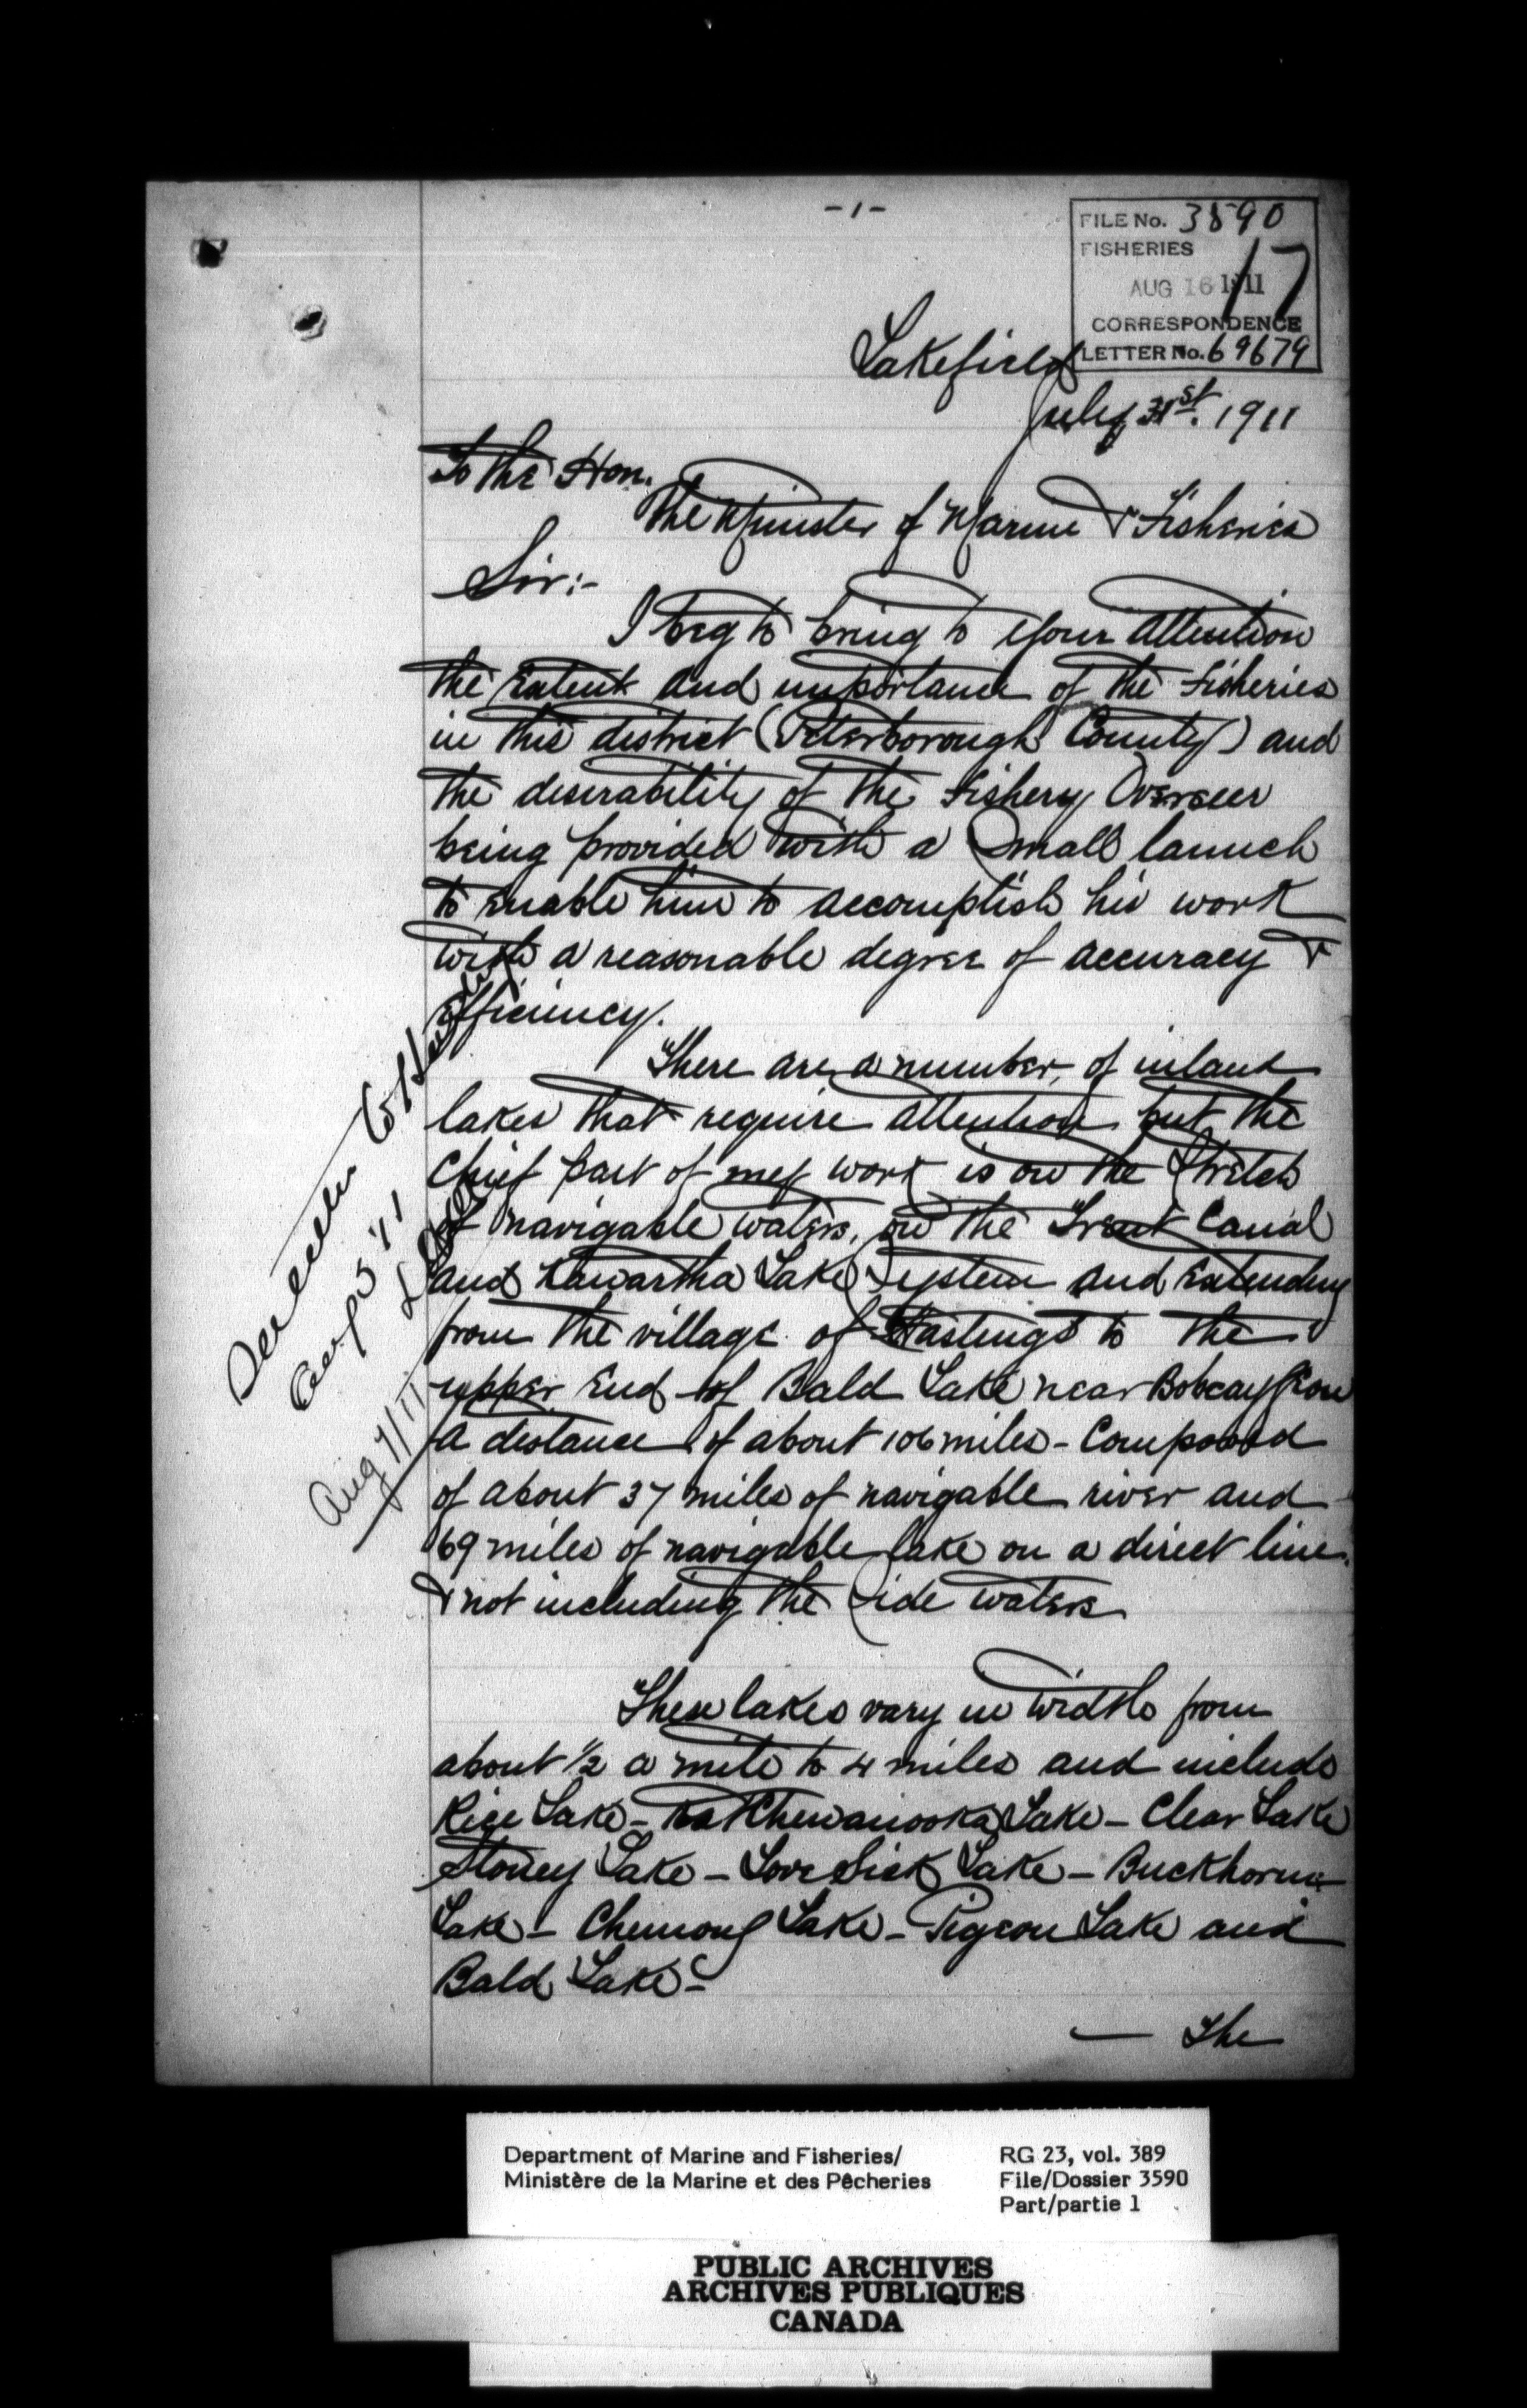 -1-
FILE No. 3590
FISHERIES 17
AUG 16 1911
CORRESPONDENCE
LETTER No. 69679
Lakefield
July 31st. 1911
To the Hon.
The Minister of Marine & Fisheries
Sir:-
I beg to bring to your attention
the Extent and importance of the Fisheries
in this district (Peterborough County) and
the desirability of the Fishery Overseer
being provided with a Small launch
to Enable him to accomplish his work
with a reasonable degree of accuracy &
Efficiency.
There are a number of inland
lakes that require attention but the
Chief part of my work is on the Stretch
of navigable waters, on the Trent Canal
and Kawartha Lake System and Extending
from the village of Hastings to the
upper End of Bald Lake near Bobcaygeon
a distance of about 106 miles - Composed
of about 37 miles of navigable river and
69 miles of navigable lake on a direct line
& not including the Side waters
These lakes vary in width from
about ½ a mile to 4 miles and include
Rice Lake - Katchewanooka Lake - Clear Lake
Stoney Lake - Love Sick Lake - Buckhorn
Lake - Chemong Lake - Pigeon Lake and
Bald Lake -
— The
Aug 7/11
Department of Marine and Fisheries/
Ministère de la Marine et des Pêcheries
RG 23, vol. 389
File/Dossier 3590
Part/partie 1
PUBLIC ARCHIVES
ARCHIVES PUBLIQUES
CANADA